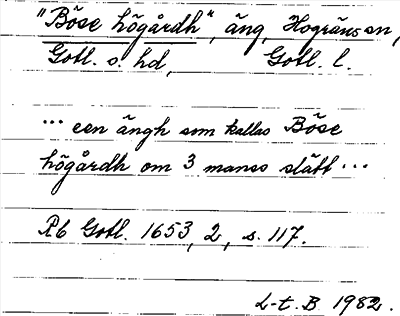 "Böse högårdh", äng, Hogräns sn,
Gotl. s. hd, Gotl. l.
... een ängh som kallas Böse
högårdh om 3 manss slätt ...
Rb Gotl. 1653, 2, s. 117.
L-t. B 1982.